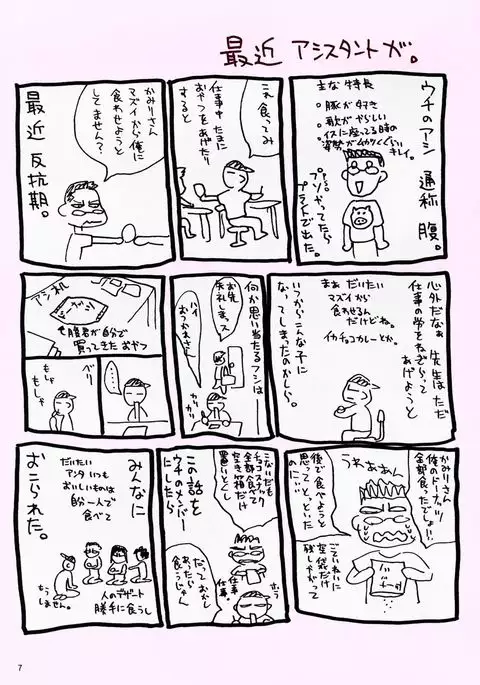 最近 アシスタントが。
ウチのアシ
通称 腹。
主な特長
・豚が好き
・歌がやらしい
・イスに座ってる時の
姿勢が
キレイ。
これ食ってみ
仕事中 たまに
おやつをあげたり
すると
かみりさん
マズイから俺に
食わせようと
してません?
最近 反抗期。
心外だなぁ 先生はただ
仕事の労をねぎらって
あげようと
まぁ だいたい
マズイから
食わせるん
だけどね。
イカチョコカレーとか。
いつからこんな子に
なってしまったのかしら。
何か思い当たるフシは
お先
失礼しまっス
ハイ
おつかれさま
アシ机
腹君が自分で
買ってきたおやつ
バリ
もしゃ
もしゃ
かみりさん
俺のドーナッツ
全部食ったでしょ!!
うわぁぁん
後で食べようと
思って とっといた
のに…
ごていねいに
空袋だけ
残しやがって
こないだも
チョコスナック
全部食べて
空き箱だけ
置いといて
仕事
仕事
だっておかし
あったら
食うじゃん
この話を
ウチのメンバー
にしたら
みんなに
おこられた。
だいたい
アンタいつも
おいしいものは
自分一人で
食べて
人のデザート
勝手に食うし
もう
しません。
7